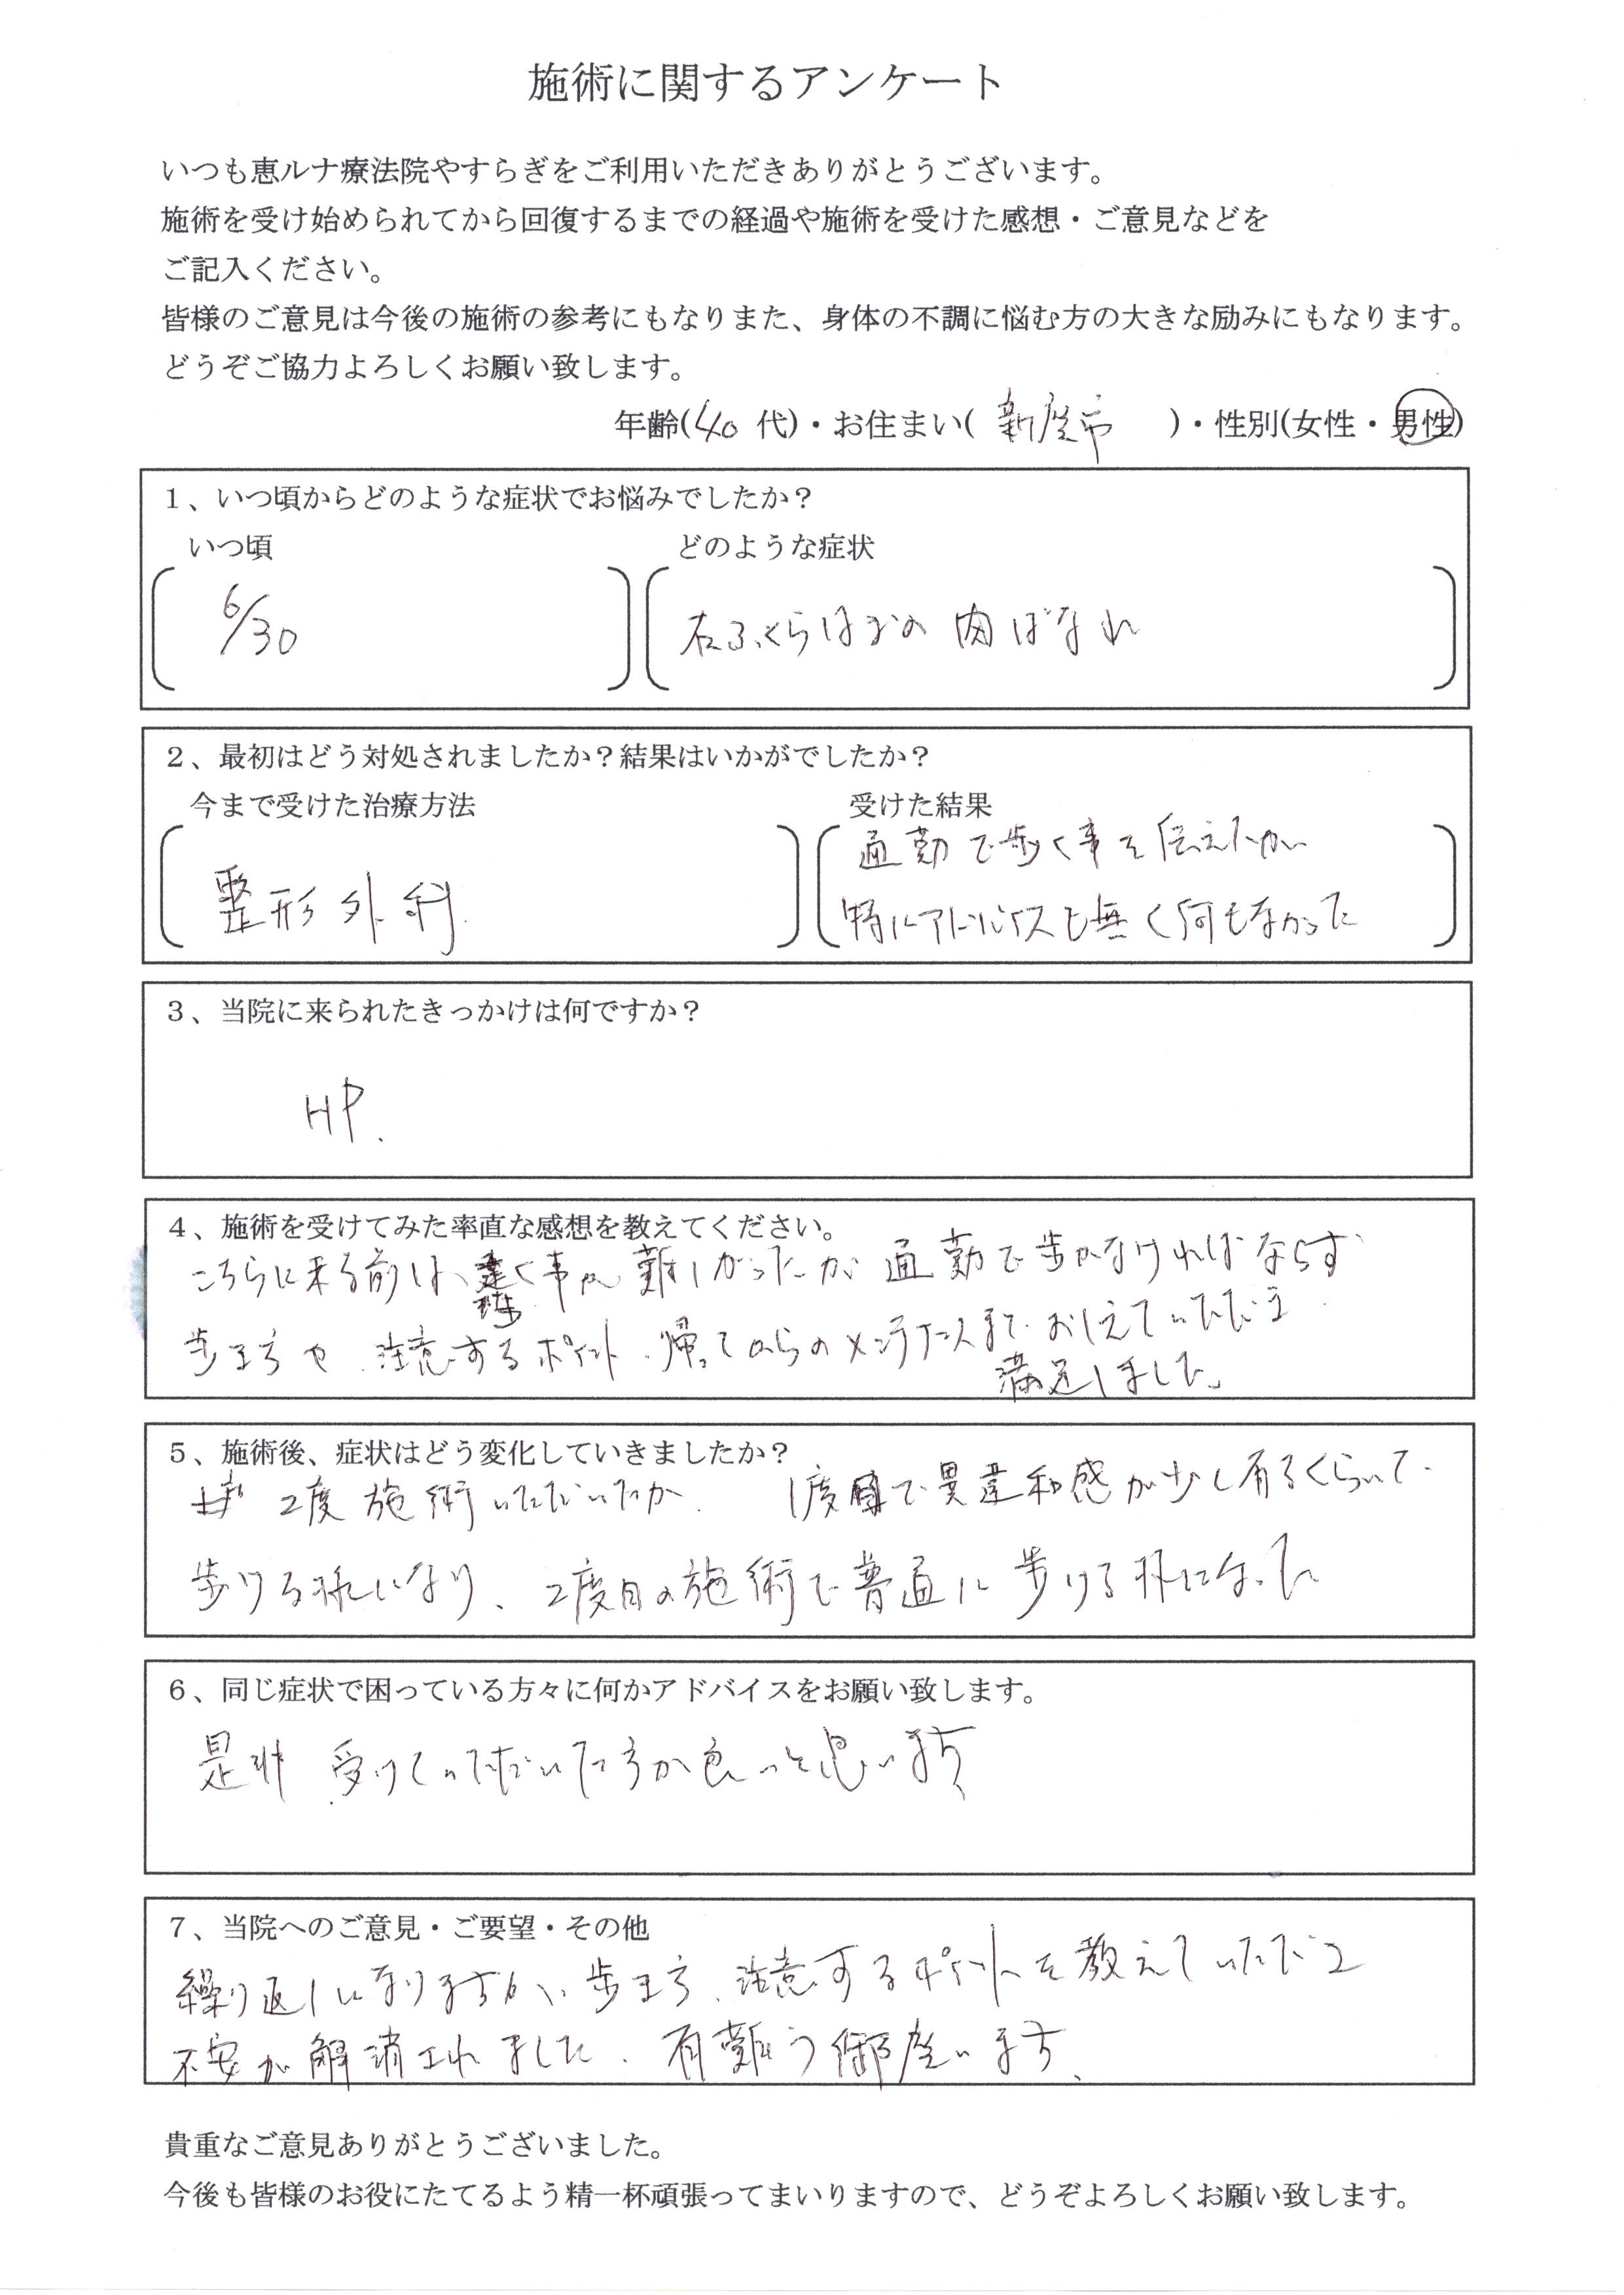 施術に関するアンケート
いつも恵ルナ療法院やすらぎをご利用いただきありがとうございます。
施術を受け始められてから回復するまでの経過や施術を受けた感想・ご意見などを
ご記入ください。
皆様のご意見は今後の施術の参考にもなりまた、身体の不調に悩む方の大きな励みにもなります。
どうぞご協力よろしくお願い致します。
年齢(40 代)・お住まい( 新座市 )・性別(女性・男性)
1、いつ頃からどのような症状でお悩みでしたか？
いつ頃 どのような症状
6/30 右ふくらはぎの肉ばなれ
2、最初はどう対処されましたか？結果はいかがでしたか？
今まで受けた治療方法 受けた結果
通勤で歩く事を伝えたが
整形外科 特にアドバイスも無く何もなかった
3、当院に来られたきっかけは何ですか？
HP.
4、施術を受けてみた率直な感想を教えてください。
こちらに来る前は、歩く事が難しかったが通勤で歩かなければならず
歩き方や、注意するポイント、帰ってからのメンテナンスまでおしえていただき
満足しました。
5、施術後、症状はどう変化していきましたか？
2度施術いただいたが、1度目で異違和感が少し有るくらいで
歩ける様になり、2度目の施術で普通に歩ける様になった
6、同じ症状で困っている方々に何かアドバイスをお願い致します。
是非 受けていただいた方が良いと思います
7、当院へのご意見・ご要望・その他
繰り返しになりますが、歩き方、注意するポイントを教えていただき
不安が解消されました。有難う御座います。
貴重なご意見ありがとうございました。
今後も皆様のお役にたてるよう精一杯頑張ってまいりますので、どうぞよろしくお願い致します。